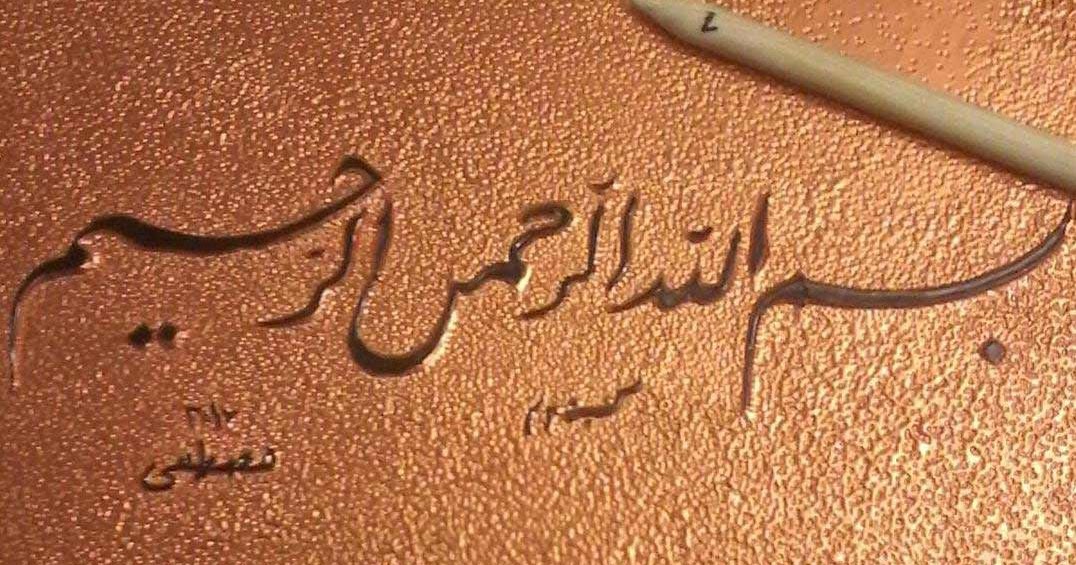 بسم الله الرحمن الرحيم
مصطفى